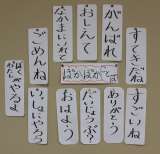 すてきだね
がんばれ
おしえて
なかまにいれて
ごめんね
ぽかぽかことば
すごいね
ありがとう
だいじょうぶ?
おはよう
いっしょにやろう
ぼくがやるよ